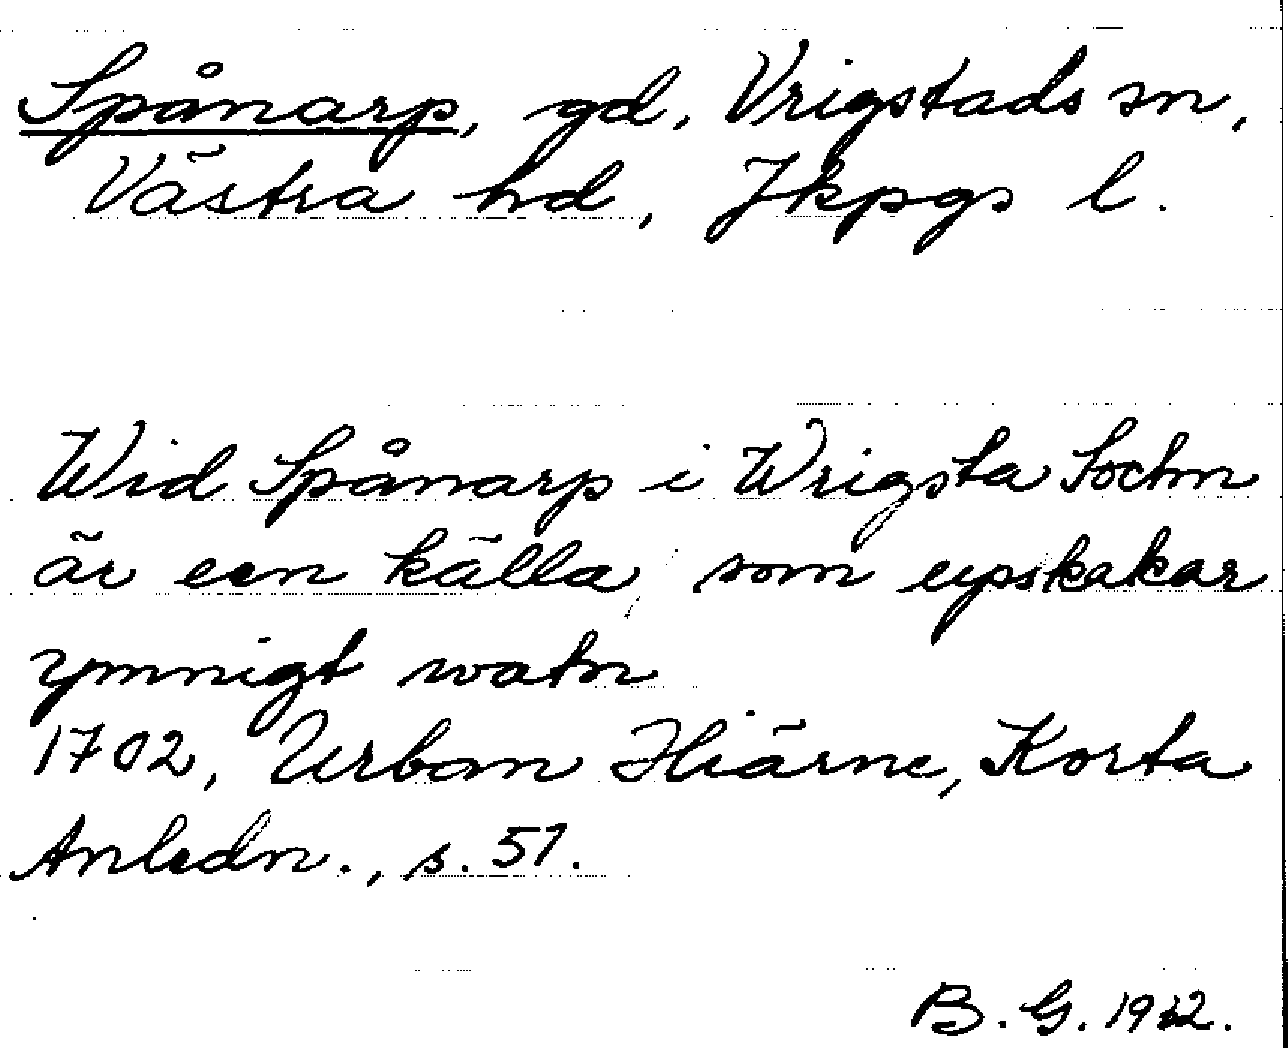 Spånarp, gd, Vrigstads sn,
Västra hd, Jkpgs l.
Wid Spånarp i Wrigsta Sochn
är een källa, som upskakar
ymnigt watn
1702, Urban Hiärne, Korta
Anledn., s. 51.
B. G.